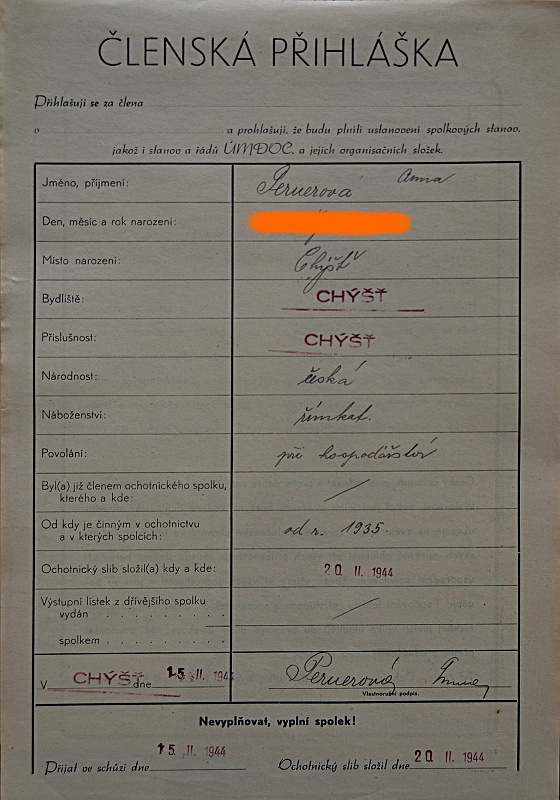 ČLENSKÁ PŘIHLÁŠKA
Přihlašuji se za člena
v a prohlašuji, že budu plniti ustanovení spolkových stanov,
jakož i stanov a řádů ÚMDOČ. a jejich organisačních složek.
Jméno, příjmení: Pernerová Anna
Den, měsíc a rok narození:
Místo narození: Chýšť
Bydliště: CHÝŠŤ
Příslušnost: CHÝŠŤ
Národnost: česká
Náboženství: římkat.
Povolání: při hospodářství
Byl(a) již členem ochotnického spolku,
kterého a kde: /
Od kdy je činným v ochotnictvu
a v kterých spolcích: od r. 1935.
Ochotnický slib složil(a) kdy a kde: 20 II. 1944
Výstupní lístek z dřívějšího spolku
vydán . . . . . . . . . . /
spolkem . . . . . . . . .
V CHÝŠŤ dne 15 II. 1944 Pernerová Anna
Vlastnoruční podpis.
Nevyplňovat, vyplní spolek!
Přijat ve schůzi dne 15. II. 1944 Ochotnický slib složil dne 20 II. 1944